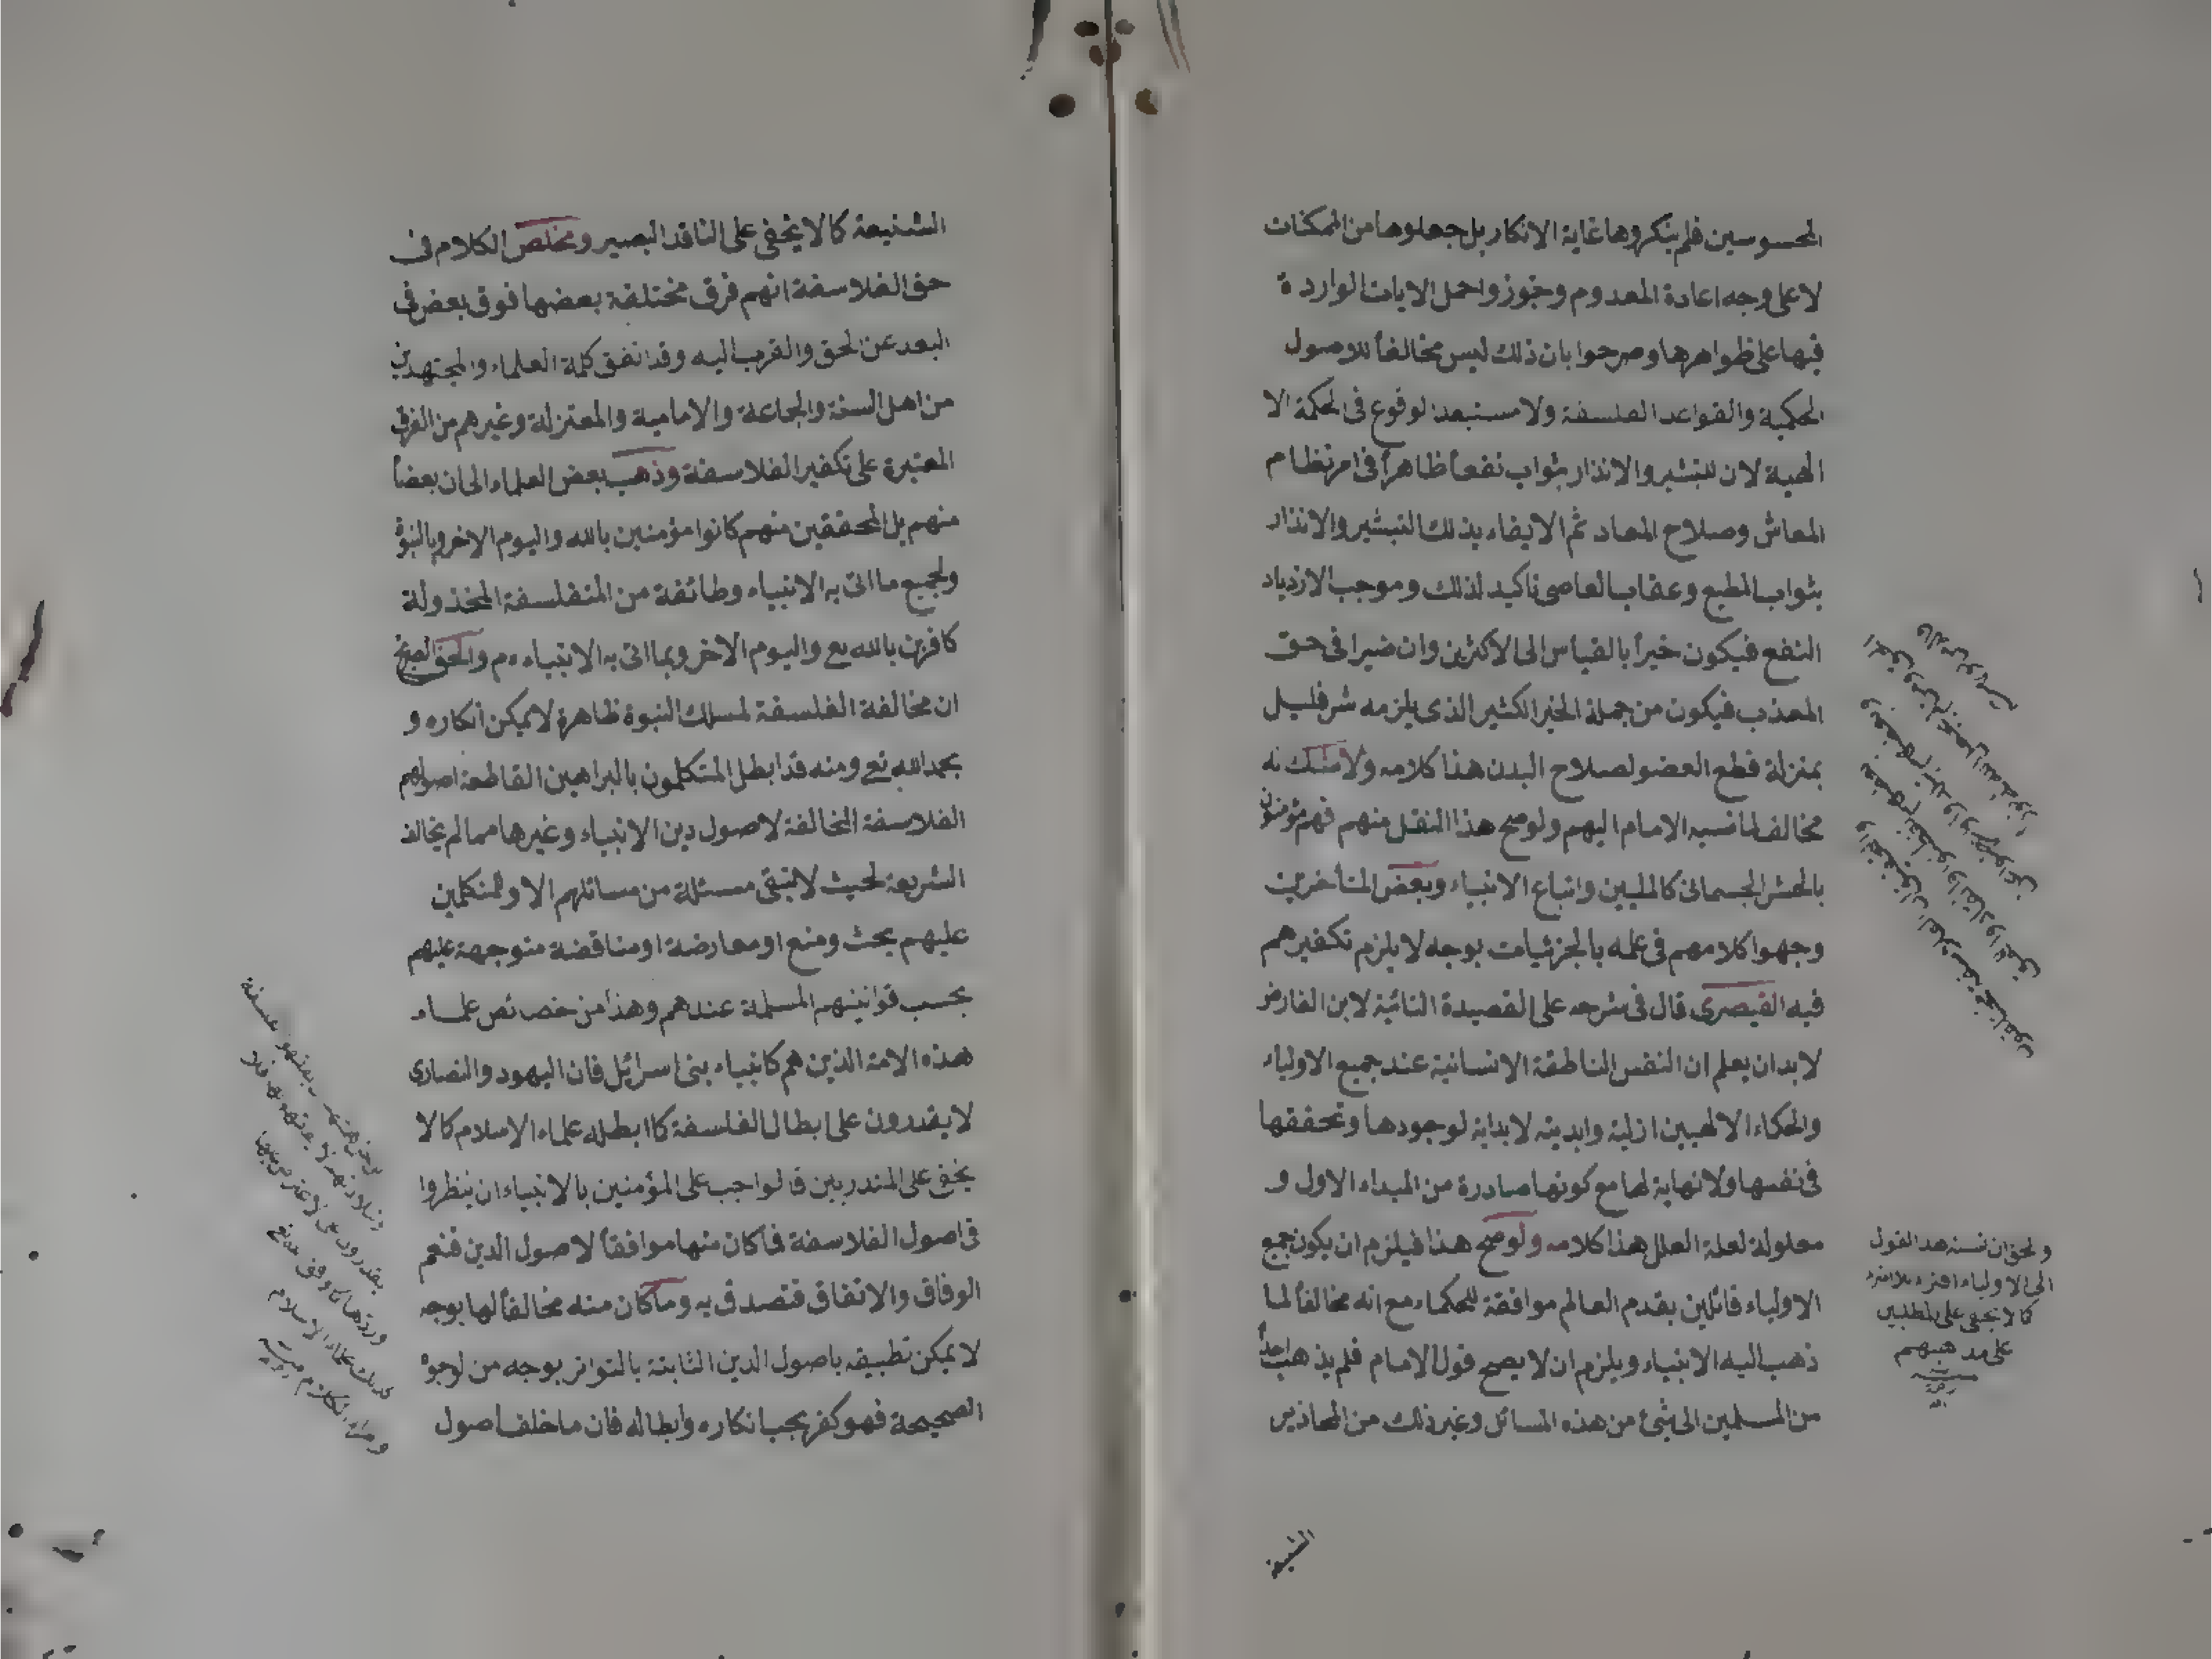 المحسوسين فلم ينكروها غاية الانكار بل جعلوها من الممكنات
لا على وجه اعادة المعدوم وجوزوا حمل الايات الواردة
فيها على ظواهرها وصرحوا بان ذلك ليس مخالفاً للاصول
الحكمية والقواعد الفلسفة ولا مستبعد الوقوع فى الحكمة الا
الهية لان للتبشير والانذار بثواب نفعاً ظاهراً فى امر نظام
المعاش وصلاح المعاد ثم الايفاء بذلك التبشير والانذار
بثواب المطيع وعقاب العاصى تاكيد لذلك وموجب الازدياد
النفع فيكون خيراً بالقياس الى الاكثرين وان ضيرا فى حق
المعذب فيكون من جملة الخير الكثير الذى يلزمه شر قليل
بمنزلة قطع العضو لصلاح البدن هذا كلامه ولا شك انه
مخالف لما نسبه الامام اليهم ولو صح هذا النقل منهم فهم مؤمنون
بالحشر الجسمانى كالمليين واتباع الانبياء وبعض المتأخرين
وجهوا كلامهم فى علمه بالجزئيات بوجه لا يلزم تكفيرهم
فيه القيصرى قال فى شرحه على القصيدة التائية لابن الفارض
لا بد ان يعلم ان النفس الناطقة الانسانية عند جميع الاولياء
والحكماء الالهيين ازلية وابدية لا بداية لوجودها وتحققها
فى نفسها ولا نهاية لها مع كونها صادرة من المبداء الاول و
معلولة لعلة العلل هذا كلامه ولو صح هذا فيلزم ان يكون جميع
الاولياء قائلين بقدم العالم موافقة للحكماء مع انه مخالفاً لما
ذهب اليه الانبياء ويلزم ان لا يصح قول الامام فلم يذهب احد
من المسلمين الى شئ من هذه المسائل وغير ذلك من المحاذير
ولحق ان نسبة هذا القول
الى الاولياء افتراء بلا امتراء
كما لا يخفى على المطلعين
على مذهبهم
الشنيعة
الشنيعة كما لا يخفى على الناقد البصير ومخلص الكلام فى
حق الفلاسفة انهم فرق مختلفة بعضها فوق بعض فى
البعد عن الحق والقرب اليه وقد اتفق كلمة العلماء والمجتهدين
من اهل السنة والجماعة والامامية والمعتزلة وغيرهم من الفرق
المعتبرة على تكفير الفلاسفة وذهب بعض العلماء الى ان بعضاً
منهم بل المحققين منهم كانوا مؤمنين بالله واليوم الاخر وبالنبوة
ولجميع ما اتى به الانبياء وطائفة من المتفلسفة المخذولة
كافرين بالله تع واليوم الاخر وبما اتى به الانبياء ءم والحق الصريح
ان مخالفة الفلسفة لمسلك النبوة ظاهرة لا يمكن انكاره و
بحمد الله تع ومنه قد ابطل المتكلمون بالبراهين القاطعة اصولهم
الفلاسفة المخالفة لاصول دين الانبياء وغيرها مما لم يخالف
الشريعة لحيث لا تبقى مسئلة من مسائلهم الا وللمتكلمين
عليهم بحث ومنع او معارضة او مناقضة متوجهة عليهم
بحسب قوانينهم المسلمة عندهم وهذا من خصائص علماء
هذه الامة الذين هم كانبياء بنى اسرائل فان اليهود والنصارى
لا يقدرون على ابطال الفلسفة كما ابطله علماء الاسلام كما لا
يخفى على المتدربين فالواجب على المؤمنين بالانبياء ان ينظروا
فى اصول الفلاسفة فما كان منها موافقاً لاصول الدين فنعم
الوفاق والاتفاق فتصدق به وما كان منه مخالفاً لها بوجه
لا يمكن تطبيقه باصول الدين الثابتة بالتواتر بوجه من لوجوه
الصحيحة فهو كفر يجب انكاره وابطاله فان ما خلف اصول